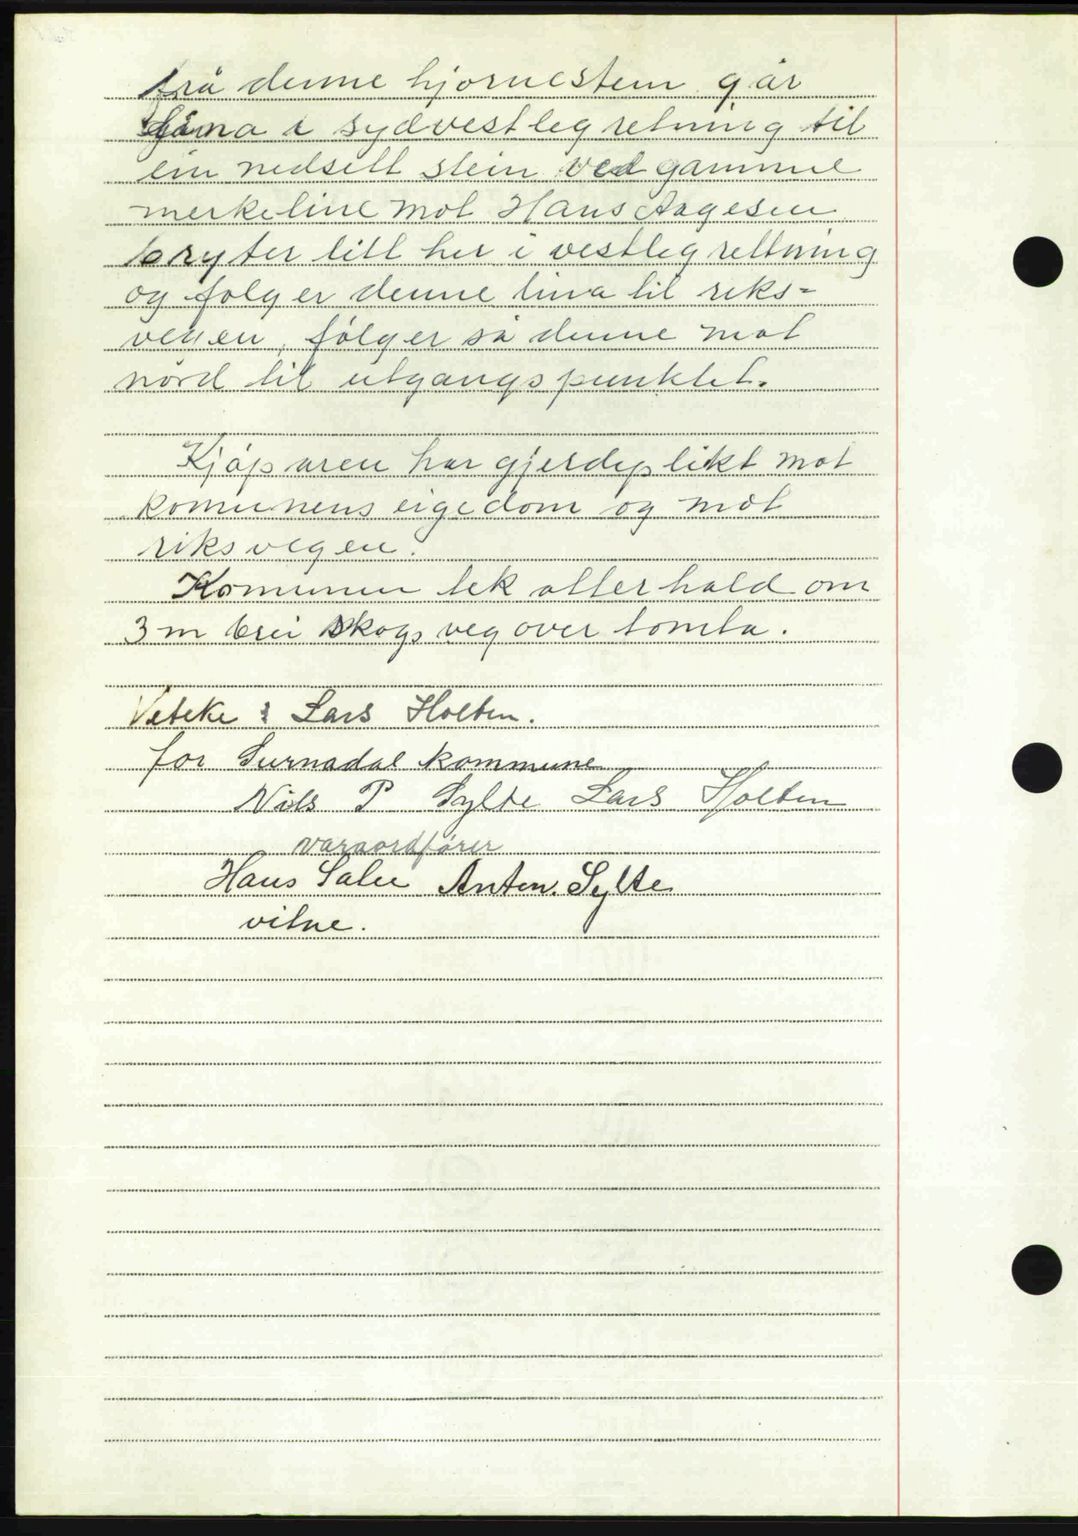 frå denne hjørnestein går
lina i sydvestleg retning til
ein nedsett stein ved gamme
merkeline mot Hans Aagesen
bryter litt her i vestleg rettning
og følger denne lina til riks-
vegen, følger så denne mot
nord til utgangspunktet.
Kjøparen har gjerdeplikt mot
komunens eigedom og mot
riksvegen.
Komunen tek atterhald om
3 m brei skogsveg over tomta.
Viteke : Lars Holten.
for Surnadal kommune
Nils P Sylte Lars Holten
varaordfører
Hans Sæter Anton Sylte
vitne.